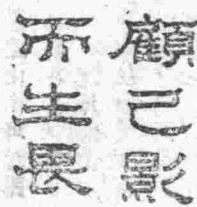 顧己影
而生畏